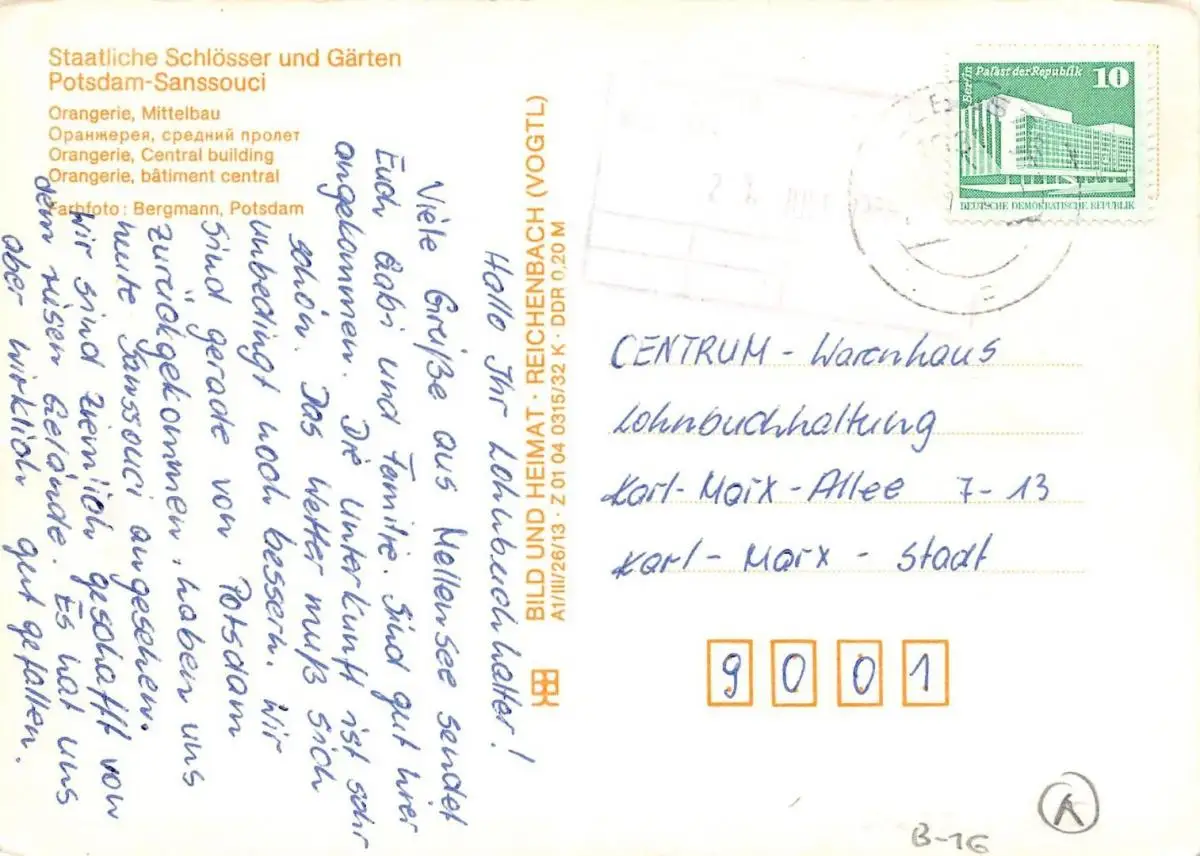 Staatliche Schlösser und Gärten
Potsdam-Sanssouci
Orangerie, Mittelbau
Оранжерея, средний пролет
Orangerie, Central building
Orangerie, bâtiment central
Farbfoto: Bergmann, Potsdam
Hallo Ihr Lohnbuchhalter!
Viele Grüße aus Mellensee sendet
Euch Gabi und Familie. Sind gut hier
angekommen. Die Unterkunft ist sehr
schön. Das Wetter muß sich
unbedingt noch bessern. Wir
sind gerade von Potsdam
zurückgekommen, haben uns
heute Sanssouci angesehen.
Wir sind ziemlich geschafft von
dem riesen Gelände. Es hat uns
aber wirklich gut gefallen.
BILD UND HEIMAT · REICHENBACH (VOGTL)
A1/III/26/13 · Z 01 04 0315/32 K · DDR 0,20 M
Berlin Palast der Republik 10
DEUTSCHE DEMOKRATISCHE REPUBLIK
CENTRUM - Warenhaus
Lohnbuchhaltung
Karl-Marx-Allee 7-13
Karl-Marx-Stadt
9001
A
B-16